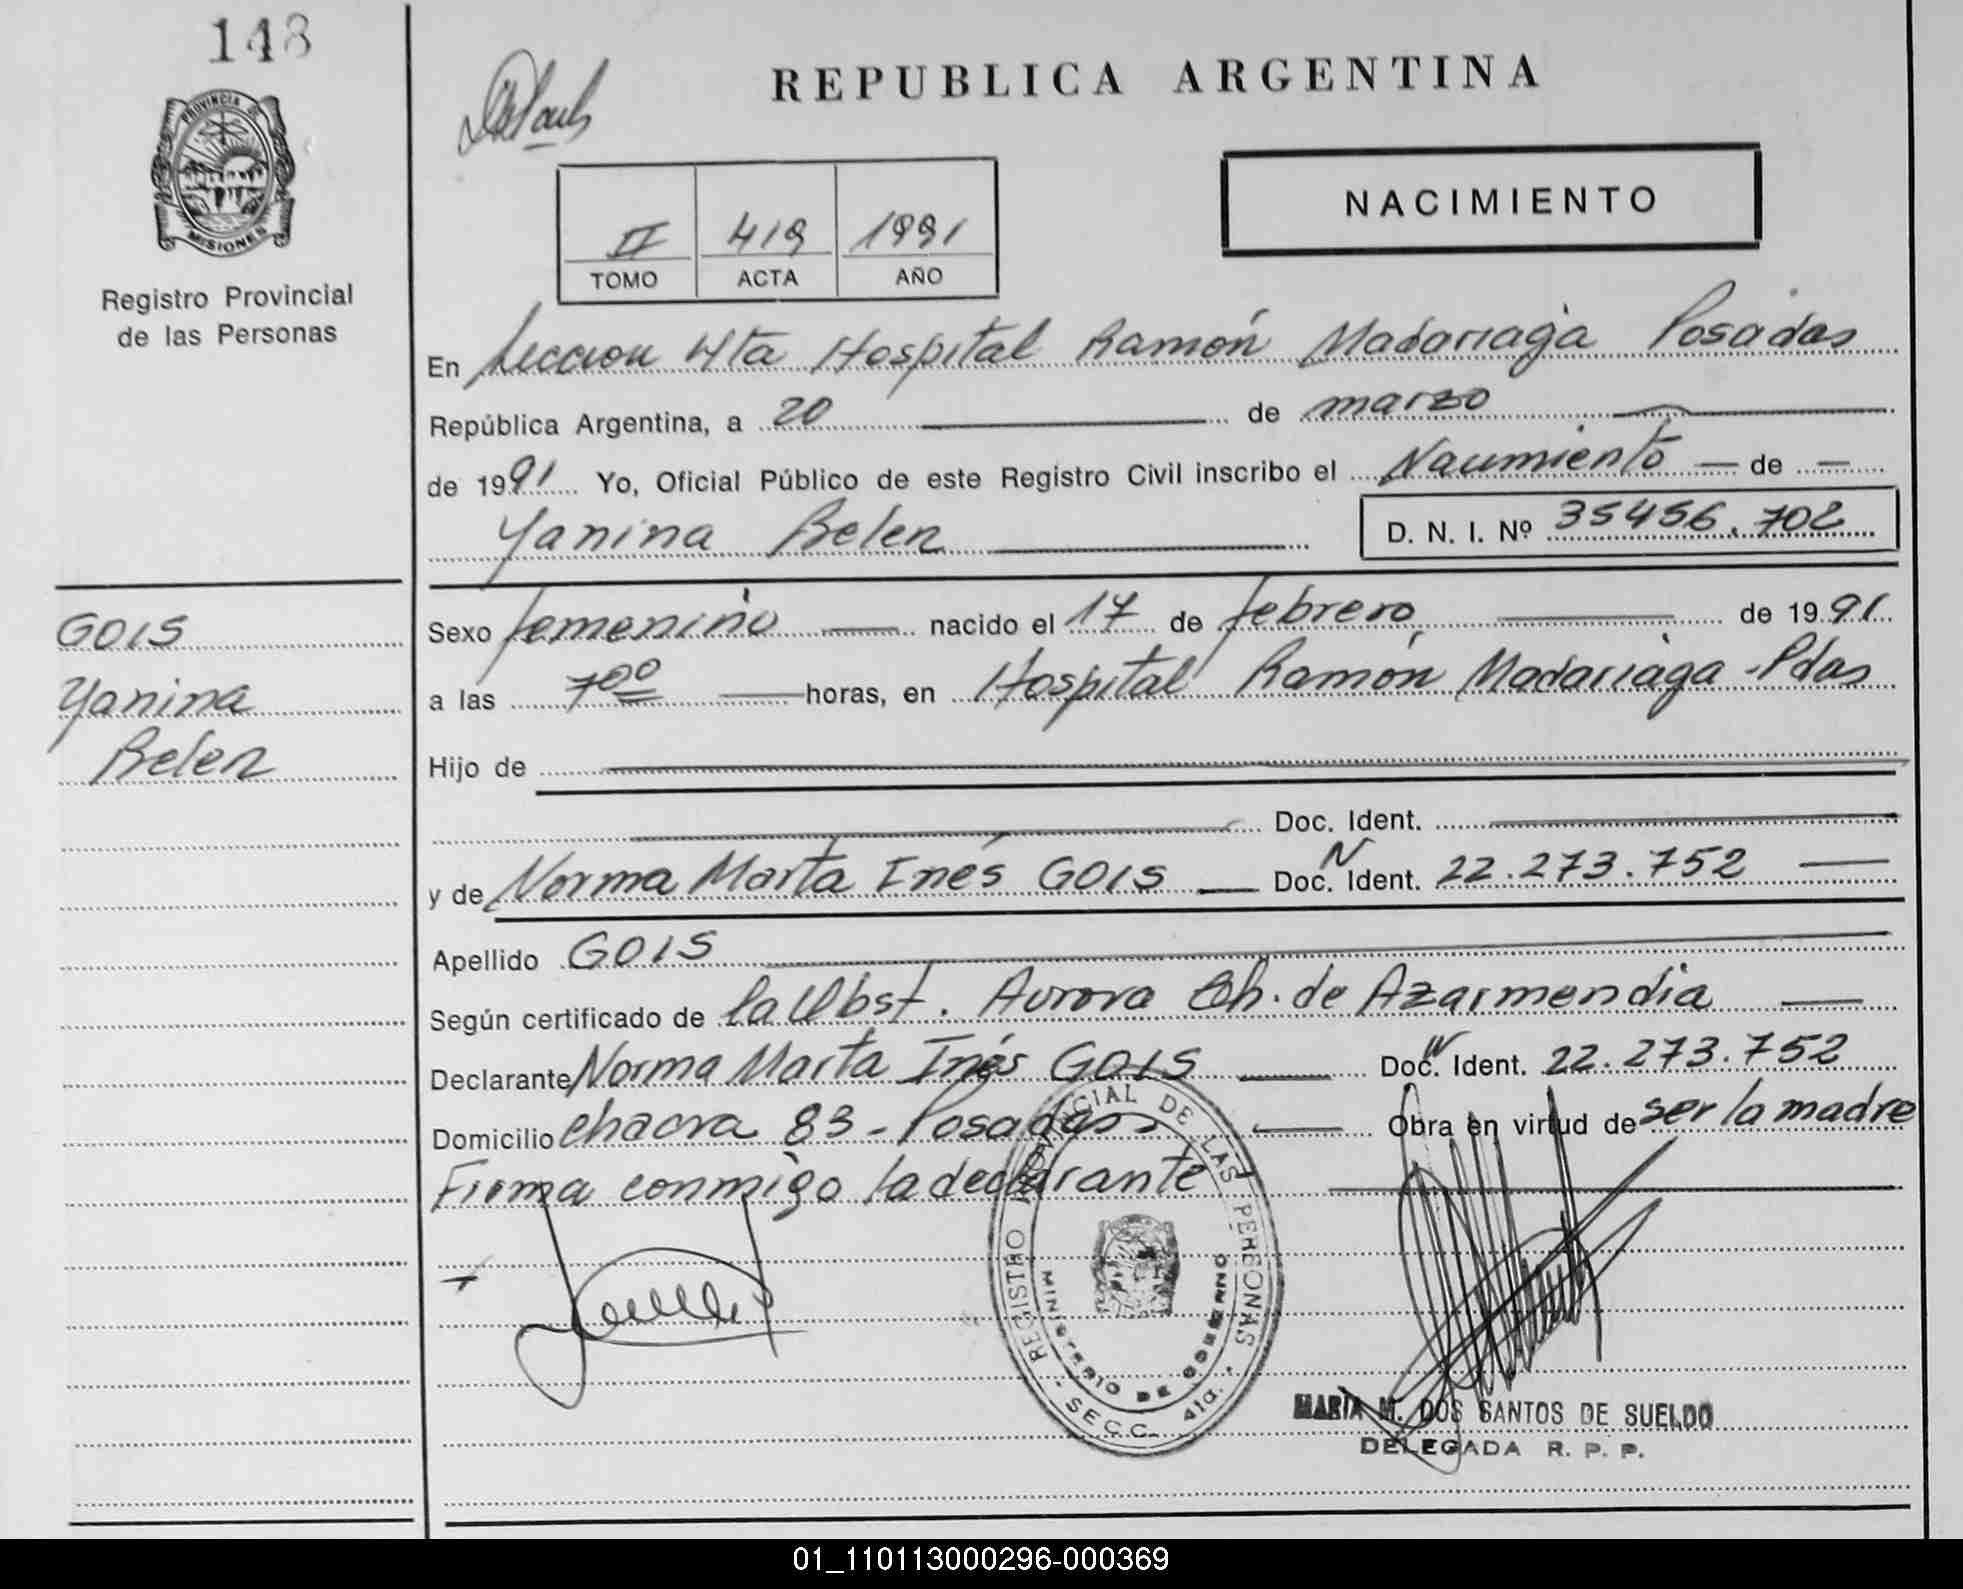 148
PROVINCIA DE
MISIONES
Registro Provincial
de las Personas
REPUBLICA ARGENTINA
NACIMIENTO
II 419 1991
TOMO ACTA AÑO
En Seccion 4ta Hospital Ramón Madariaga Posadas
República Argentina, a 20 de marzo
de 1991 Yo, Oficial Público de este Registro Civil inscribo el Nacimiento — de —
Yanina Belen D. N. I. Nº 35456.702
GOIS
Yanina
Belen
Sexo femenino — nacido el 17 de febrero de 1991
a las 700 — horas, en Hospital Ramón Madariaga - Pdas
Hijo de
Doc. Ident.
y de Norma Marta Inés GOIS — Doc. N Ident. 22.273.752 —
Apellido GOIS
Según certificado de la Obst. Aurora Ch. de Azarmendia —
Declarante Norma Marta Inés GOIS — Doc. N Ident. 22.273.752
Domicilio chacra 83 - Posadas — Obra en virtud de ser la madre
Firma conmigo la declarante
REGISTRO PROVINCIAL DE LAS PERSONAS
MINISTERIO DE GOBIERNO
- SECC. 4ta. -
MARIA M. DOS SANTOS DE SUELDO
DELEGADA R. P. P.
01_110113000296-000369